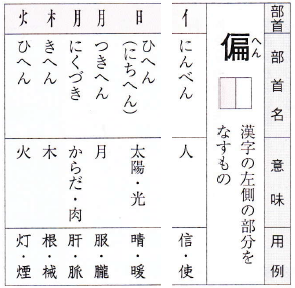 部首
部首名
意味
用例
偏
へん
漢字の左側の部分を
なすもの
亻
にんべん
人
信・使
日
ひへん
(にちへん)
太陽・光
晴・暖
月
つきへん
月
服・朧
月
にくづき
からだ・肉
肝・脈
木
きへん
木
根・械
火
ひへん
火
灯・煙